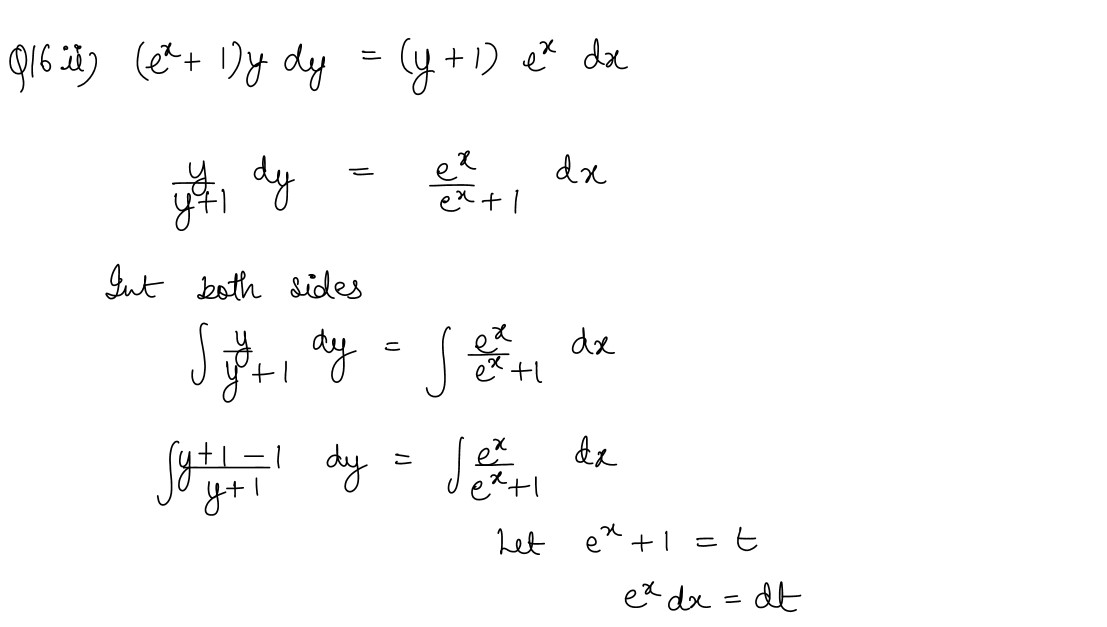 Q16 ii) (e^x + 1)y dy = (y + 1) e^x dx
y/(y+1) dy = e^x/(e^x + 1) dx
Int both sides
∫ y/(y+1) dy = ∫ e^x/(e^x + 1) dx
∫ (y+1-1)/(y+1) dy = ∫ e^x/(e^x + 1) dx
Let e^x + 1 = t
e^x dx = dt